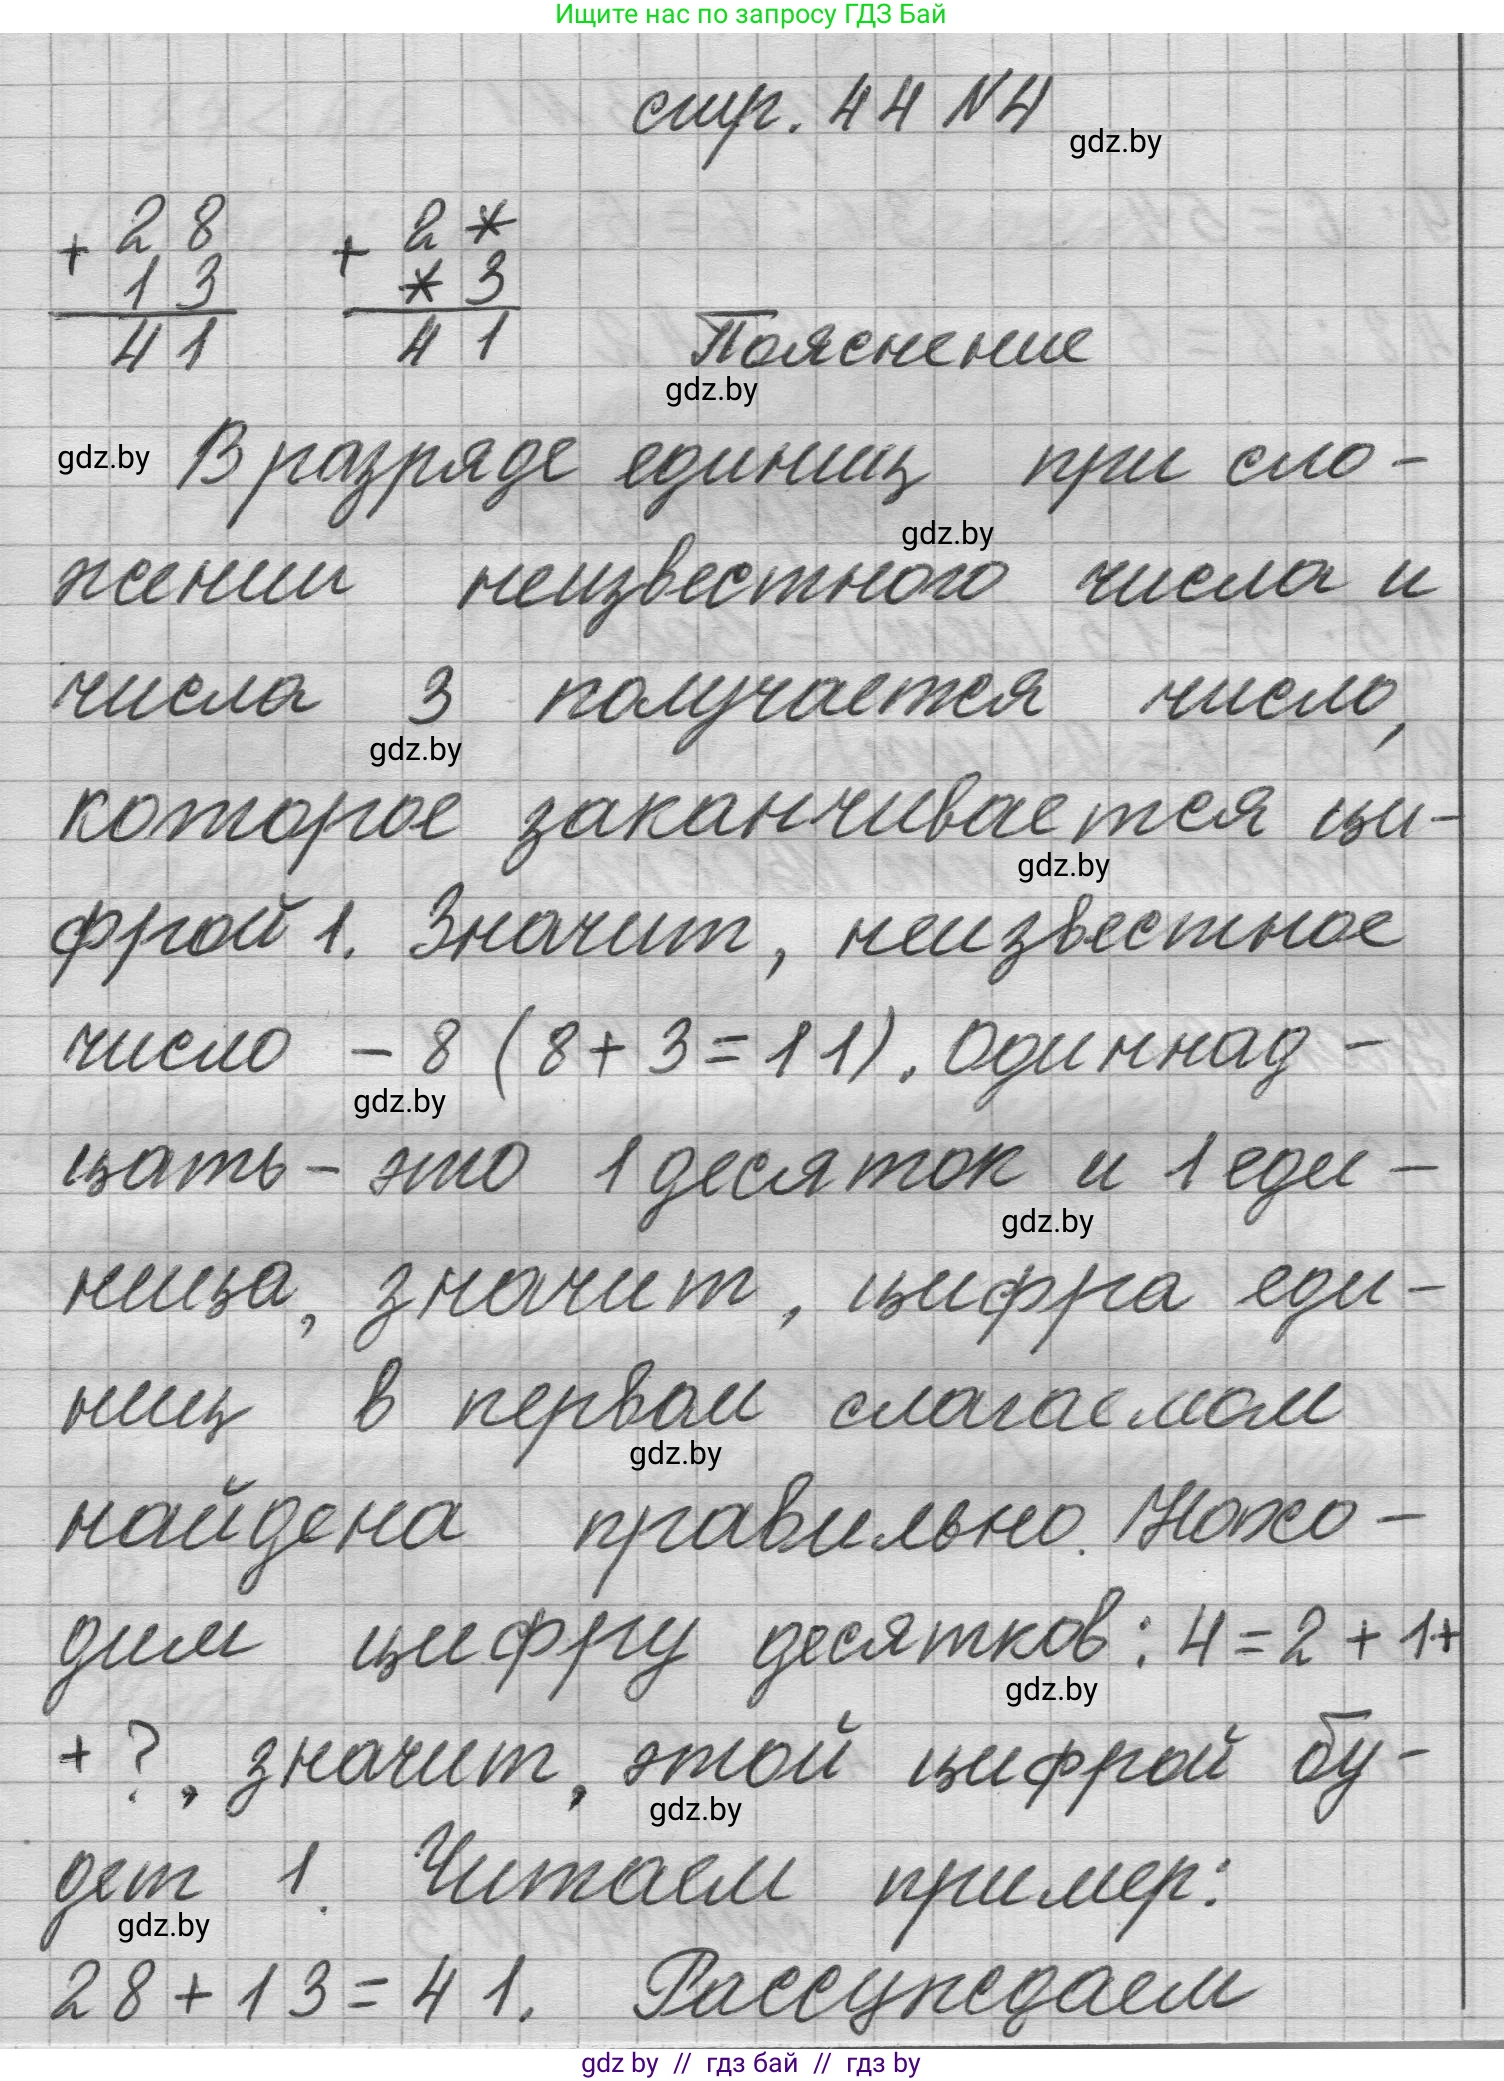 Ищите нас по запросу ГДЗ Бай
стр. 44 №4
gdz.by
+ 28 + 2*
13 *3
41 41 Пояснение
gdz.by
gdz.by В разряде единиц при сло-
gdz.by
жении неизвестного числа и
числа 3 получается число,
gdz.by
которое заканчивается ци-
gdz.by
фрой 1. Значит, неизвестное
число - 8 (8+3=11). Одиннад-
gdz.by
цать - это 1 десяток и 1 еди-
gdz.by
ница, значит, цифра еди-
ниц в первом слагаемом
gdz.by
найдена правильно. Нахо-
дим цифру десятков: 4=2+1+
gdz.by
+?, значит, этой цифрой бу-
gdz.by
дет 1. Читаем пример:
gdz.by
28+13=41. Рассуждаем
gdz by // гдз бай // гдз by